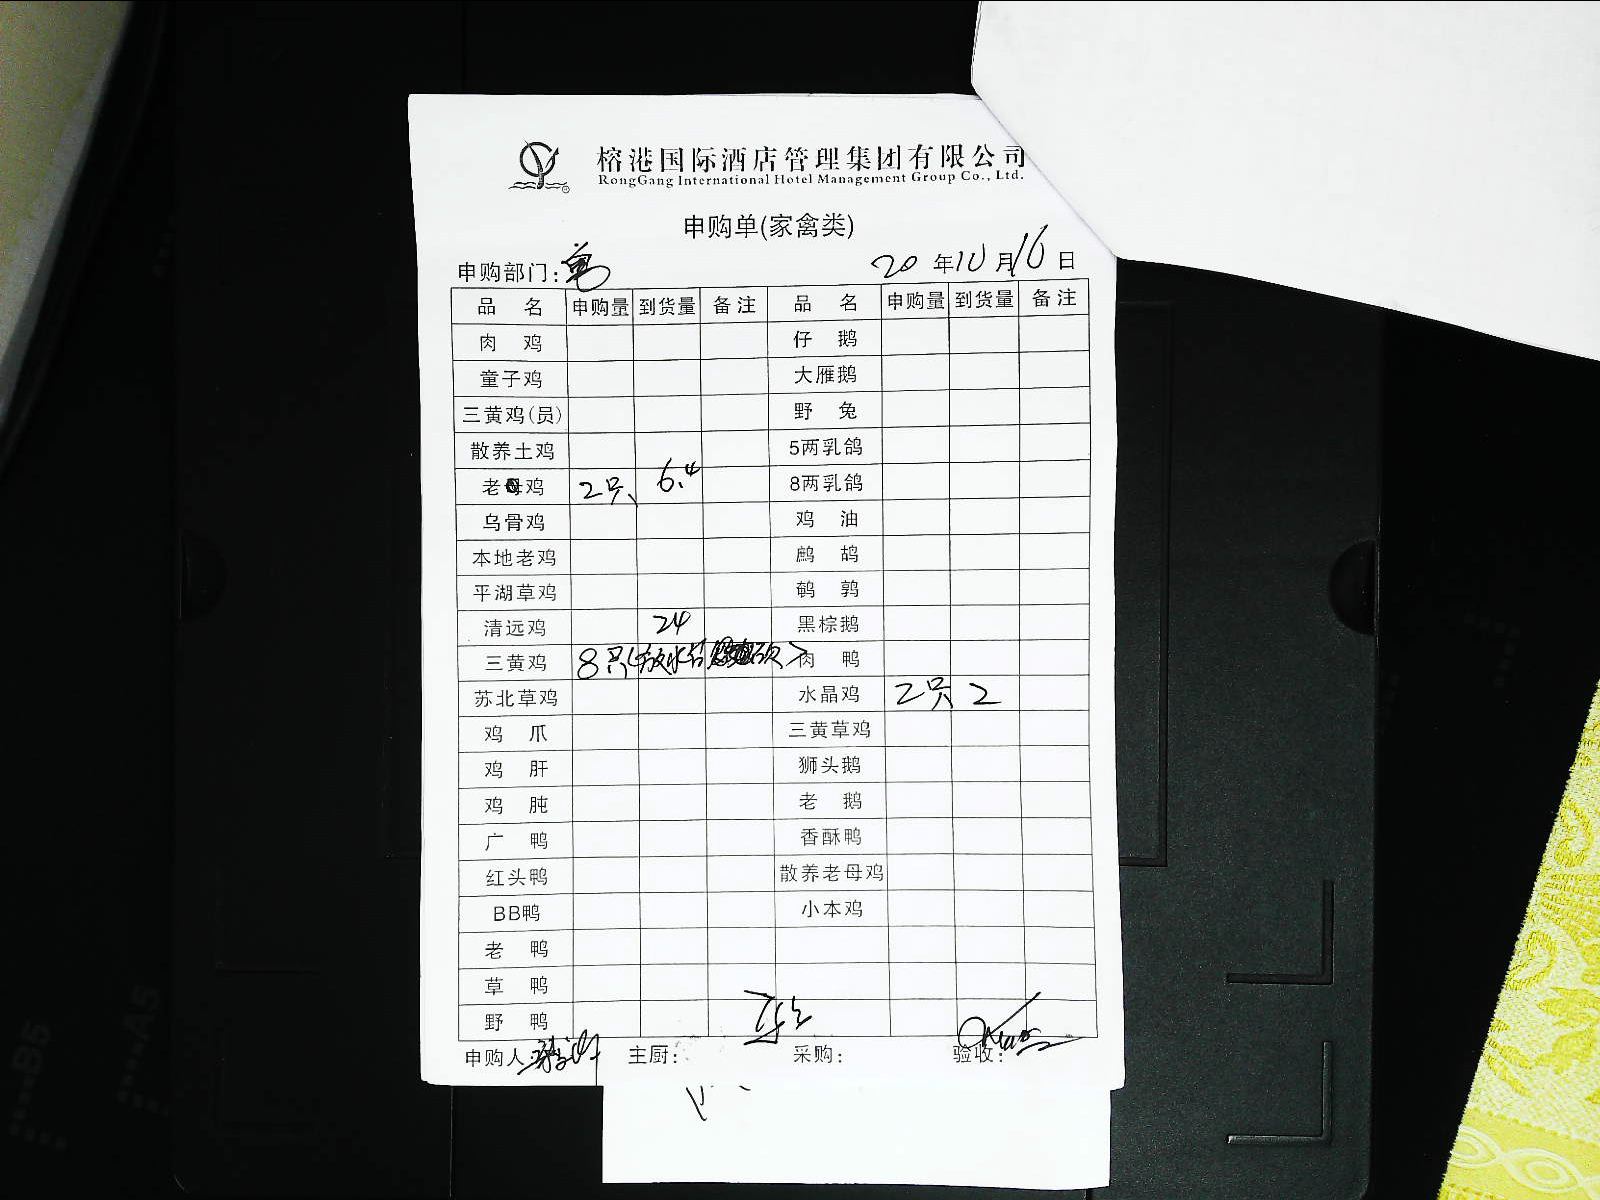 榕港国际酒店管理集团有限公司
RongGang International Hotel Management Group Co., Ltd.
申购单(家禽类)
申购部门: 20 年 10 月 16 日
品 名 申购量 到货量 备注 品 名 申购量 到货量 备注
肉 鸡 仔 鹅
童子鸡 大雁鹅
三黄鸡(员) 野 兔
散养土鸡 5两乳鸽
老母鸡 2只 6.4 8两乳鸽
乌骨鸡 鸡 油
本地老鸡 鹧 鸪
平湖草鸡 鹌 鹑
清远鸡 24 黑棕鹅
三黄鸡 8只 肉 鸭
苏北草鸡 水晶鸡 2只 2
鸡 爪 三黄草鸡
鸡 肝 狮头鹅
鸡 肫 老 鹅
广 鸭 香酥鸭
红头鸭 散养老母鸡
BB鸭 小本鸡
老 鸭
草 鸭
野 鸭
申购人: 主厨: 采购: 验收: